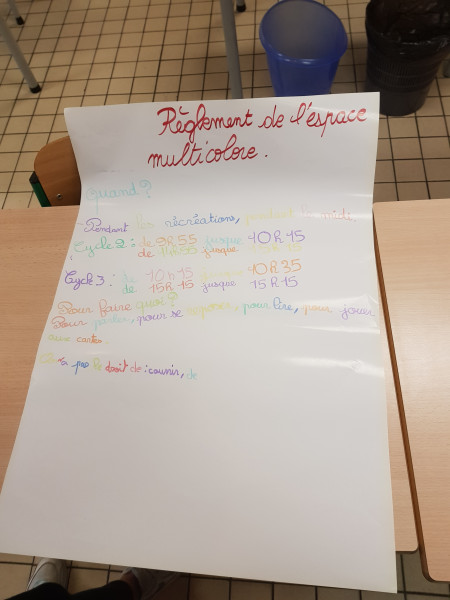 Règlement de l'espace
multicolore.
Quand?
Pendant les récréations, pendant le midi
Cycle 2: de 9h55 jusque 10h15
de 14h55 jusque 15h15
Cycle 3: de 10h15 jusque 10h35
de 15h15 jusque 15h15
Pour faire quoi?
Pour parler, pour se reposer, pour lire, pour jouer
aux cartes.
On a pas le droit de: courir, de